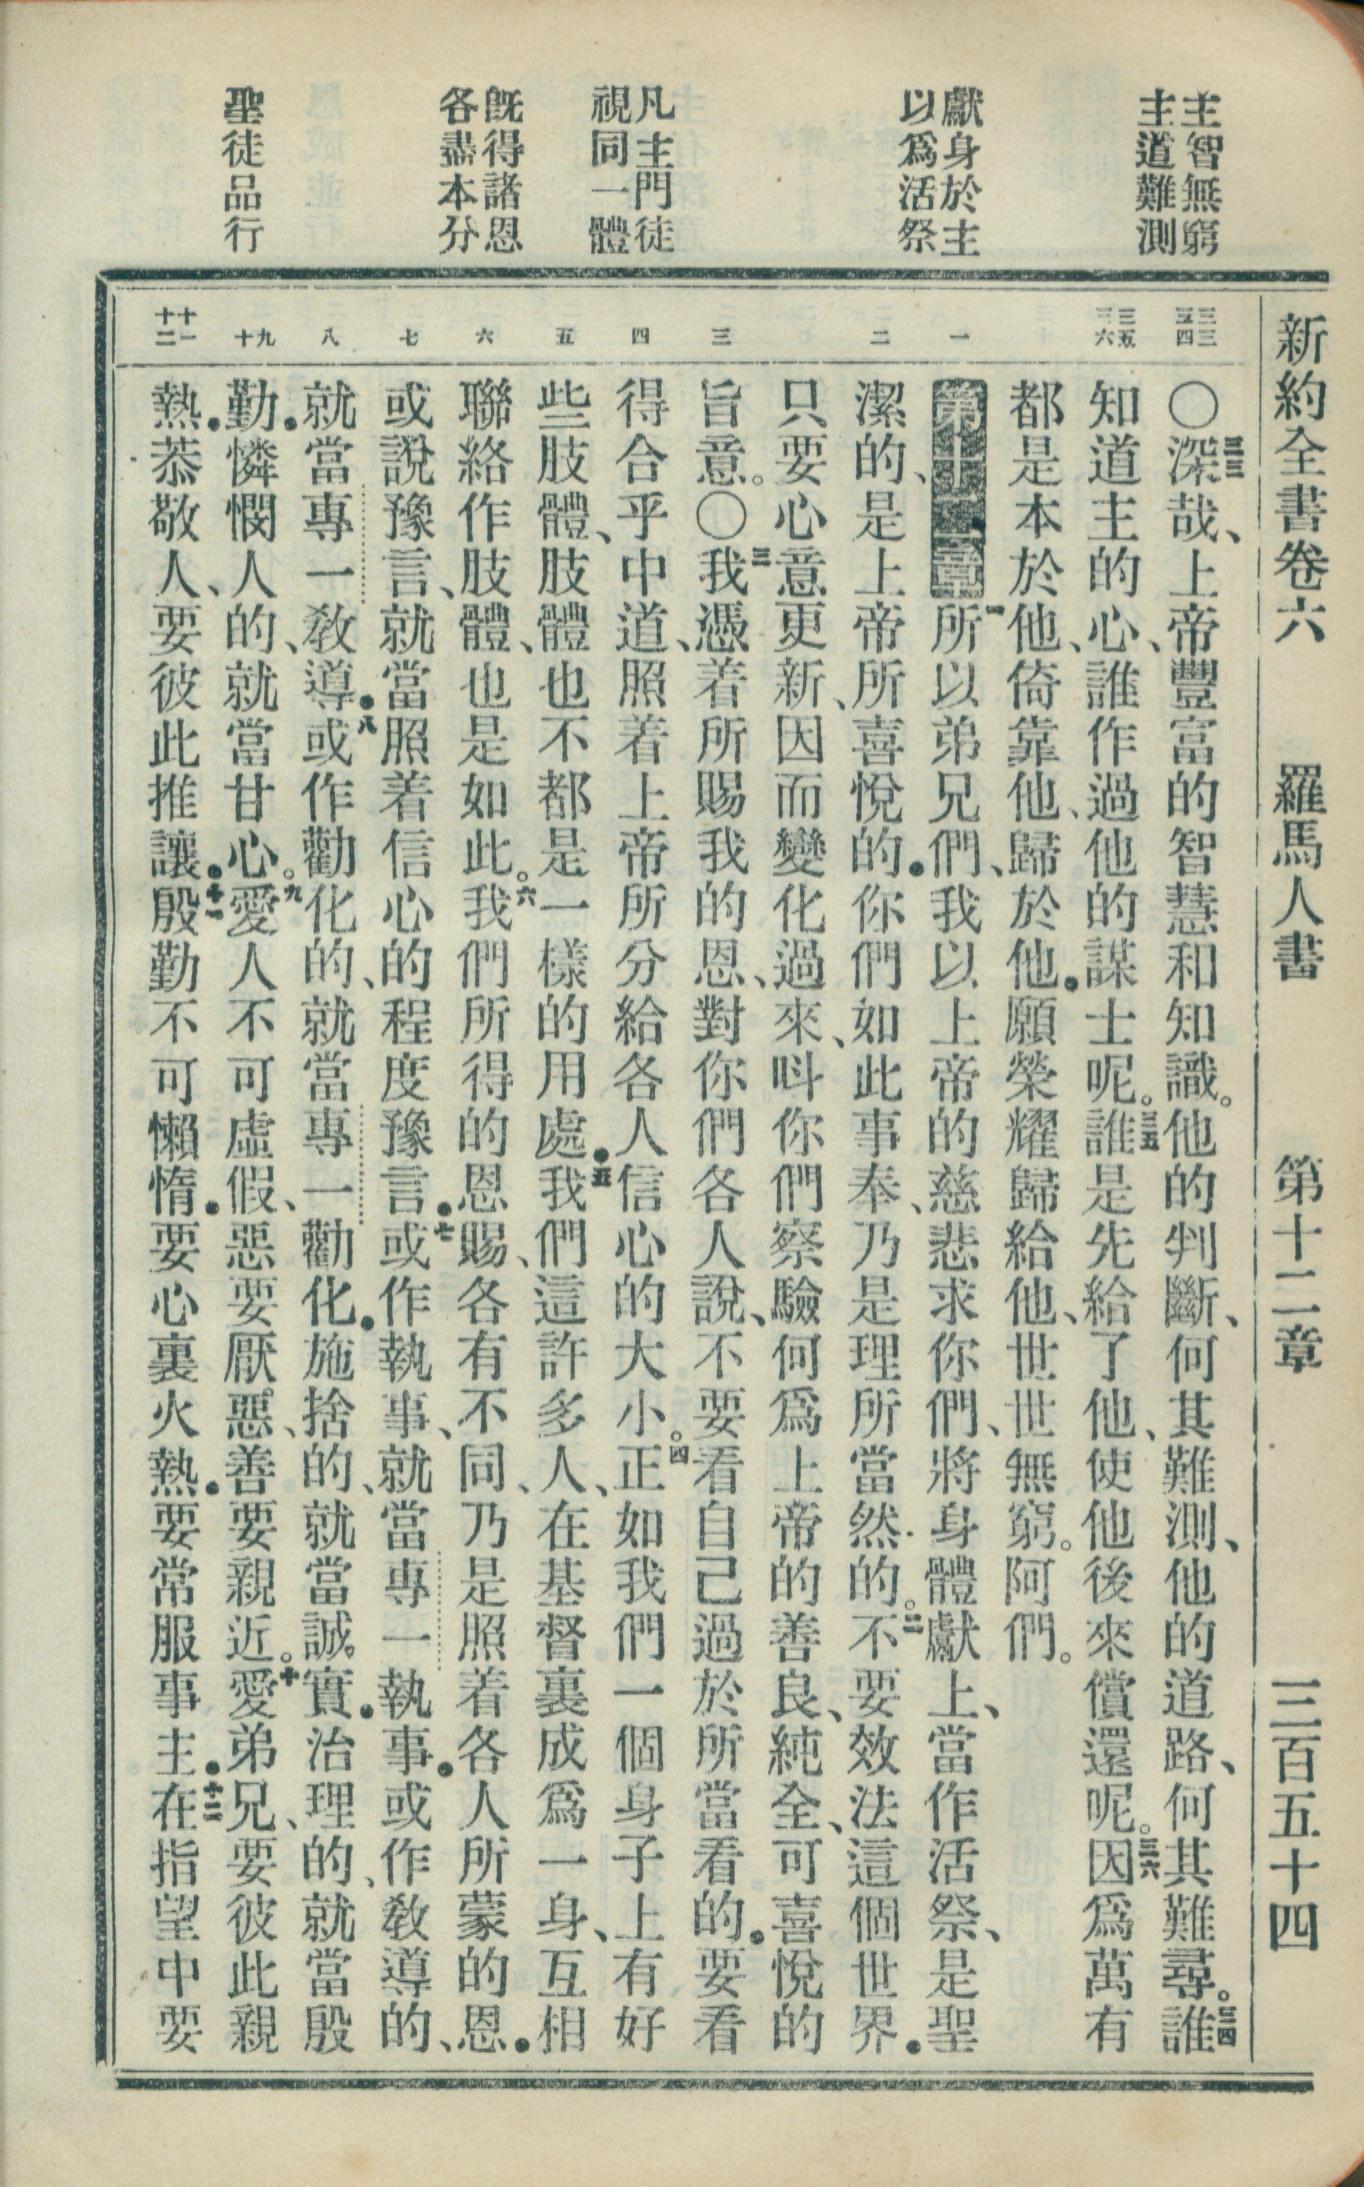 新約全書卷六　羅馬人書　第十二章　三百五十四
主智無窮
主道難測
獻身於主
以爲活祭
凡主門徒
視同一體
旣得諸恩
各盡本分
聖徒品行
三三
三四
三五
三六
一
二
三
四
五
六
七
八
九
十
十一
十二
〇三三深哉、上帝豐富的智慧和知識。他的判斷、何其難測、他的道路、何其難尋。三四誰
知道主的心、誰作過他的謀士呢。三五誰是先給了他、使他後來償還呢。三六因爲萬有
都是本於他、倚靠他、歸於他．願榮耀歸給他、世世無窮。阿們。
第十二章一所以弟兄們、我以上帝的慈悲求你們、將身體獻上、當作活祭、是聖
潔的、是上帝所喜悅的．你們如此事奉、乃是理所當然的。二不要效法這個世界．
只要心意更新、因而變化過來、呌你們察驗何爲上帝的善良、純全、可喜悅的
旨意。〇三我憑着所賜我的恩、對你們各人說、不要看自己過於所當看的．要看
得合乎中道、照着上帝所分給各人信心的大小。四正如我們一個身子上有好
些肢體、肢體也不都是一樣的用處．五我們這許多人、在基督裏成爲一身、互相
聯絡作肢體、也是如此。六我們所得的恩賜、各有不同、乃是照着各人所蒙的恩．
或說豫言、就當照着信心的程度豫言．七或作執事、就當專一執事．或作敎導的、
就當專一敎導．八或作勸化的、就當專一勸化．施捨的、就當誠實．治理的、就當殷
勤．憐憫人的、就當甘心。九愛人不可虛假、惡要厭惡、善要親近。十愛弟兄、要彼此親
熱．恭敬人、要彼此推讓．十一殷勤不可懶惰．要心裏火熱．要常服事主．十二在指望中要